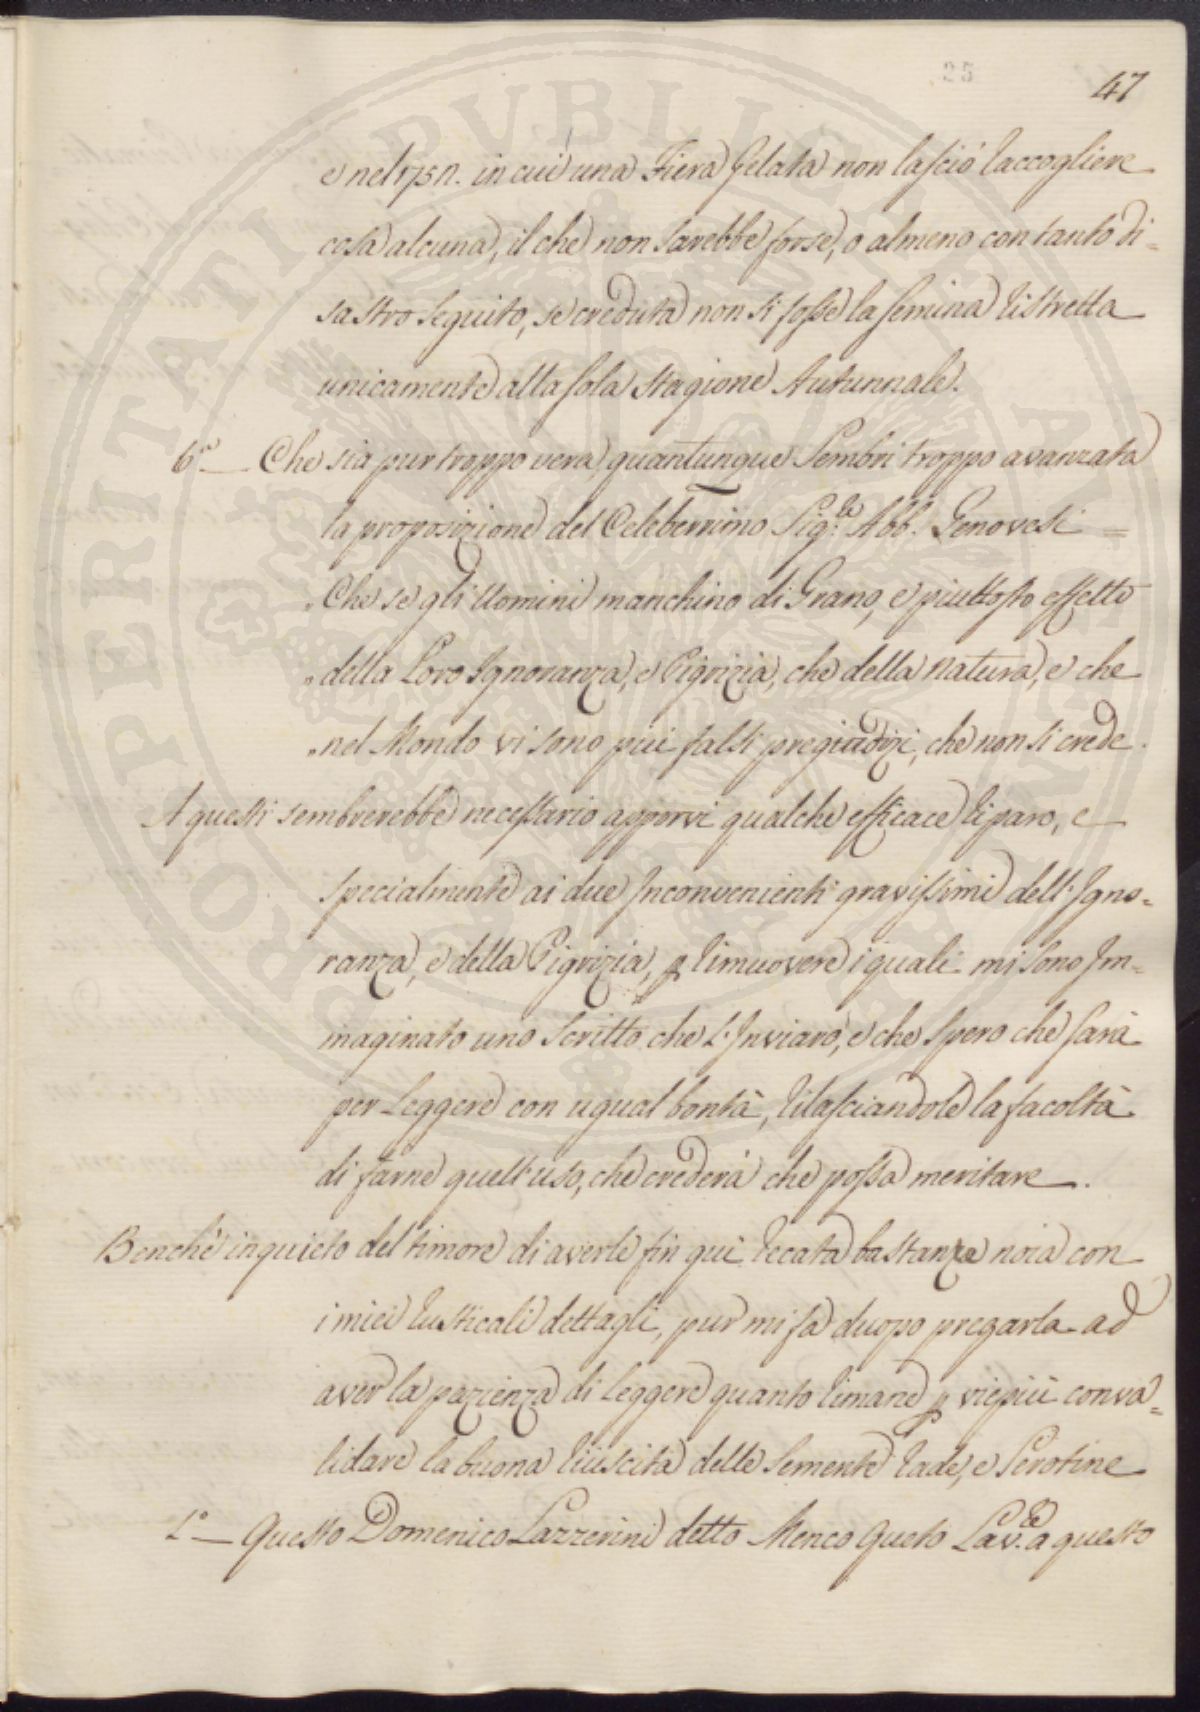 25
47
e nel 175n. in cui una Fiera Gelata non lasciò raccogliere
cosa alcuna, il che non sarebbe forse, o almeno con tanto di=
sastro seguito, se creduta non si fosse la semina ristretta
unicamente alla sola stagione Autunnale.
6.° — Che sia pur troppo vera, quantunque Sembri troppo avanzata
la proposizione del Celeberrimo Sig.re Abb. Genovesi =
„Che se gli Uomini manchino di Grano, e piuttosto effetto
„della Loro Ignoranza, e Pigrizia, che della natura, e che
„nel Mondo vi sono più falsi pregiudizi, che non si crede.
A questi sembrerebbe necessario apporvi qualche efficace riparo, e
specialmente ai due Inconvenienti gravissimi dell'Igno=
ranza, e della Pigrizia, p rimuovere i quali mi sono Im=
maginato uno Scritto che L'Inviarò, e che spero che sarà
per Leggere con ugual bontà, rilasciandole la facoltà
di farne quell'uso, che crederà che possa meritare.
Benchè inquieto del timore di averle fin qui recata bastanza noia con
i miei rusticali dettagli, pur mi fà duopo pregarla ad
aver la pazienza di Leggere quanto rimane p viepiù conva=
lidare la buona riuscita delle Semente rade, e Serotine
1.° — Questo Domenico Lazzerini detto Menco Queto Lav.re a questo